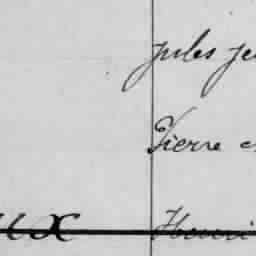 Jules Je
Pierre
ux Henri